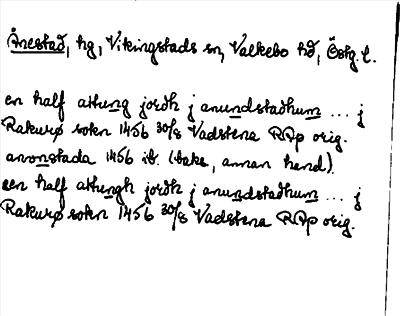 Ånestad, hg, Vikingstads sn, Valkebo hd, Östg. l.
en half athung jordh j anundstadhum ... j
Rakurø sokn 1456 30/8 Vadstena RAp orig.
anonstada 1456 ib. (baks., annan hand).
een half athungh jordh j anundstadhum ... j
Rakurø sokn 1456 30/8 Vadstena RAp orig.